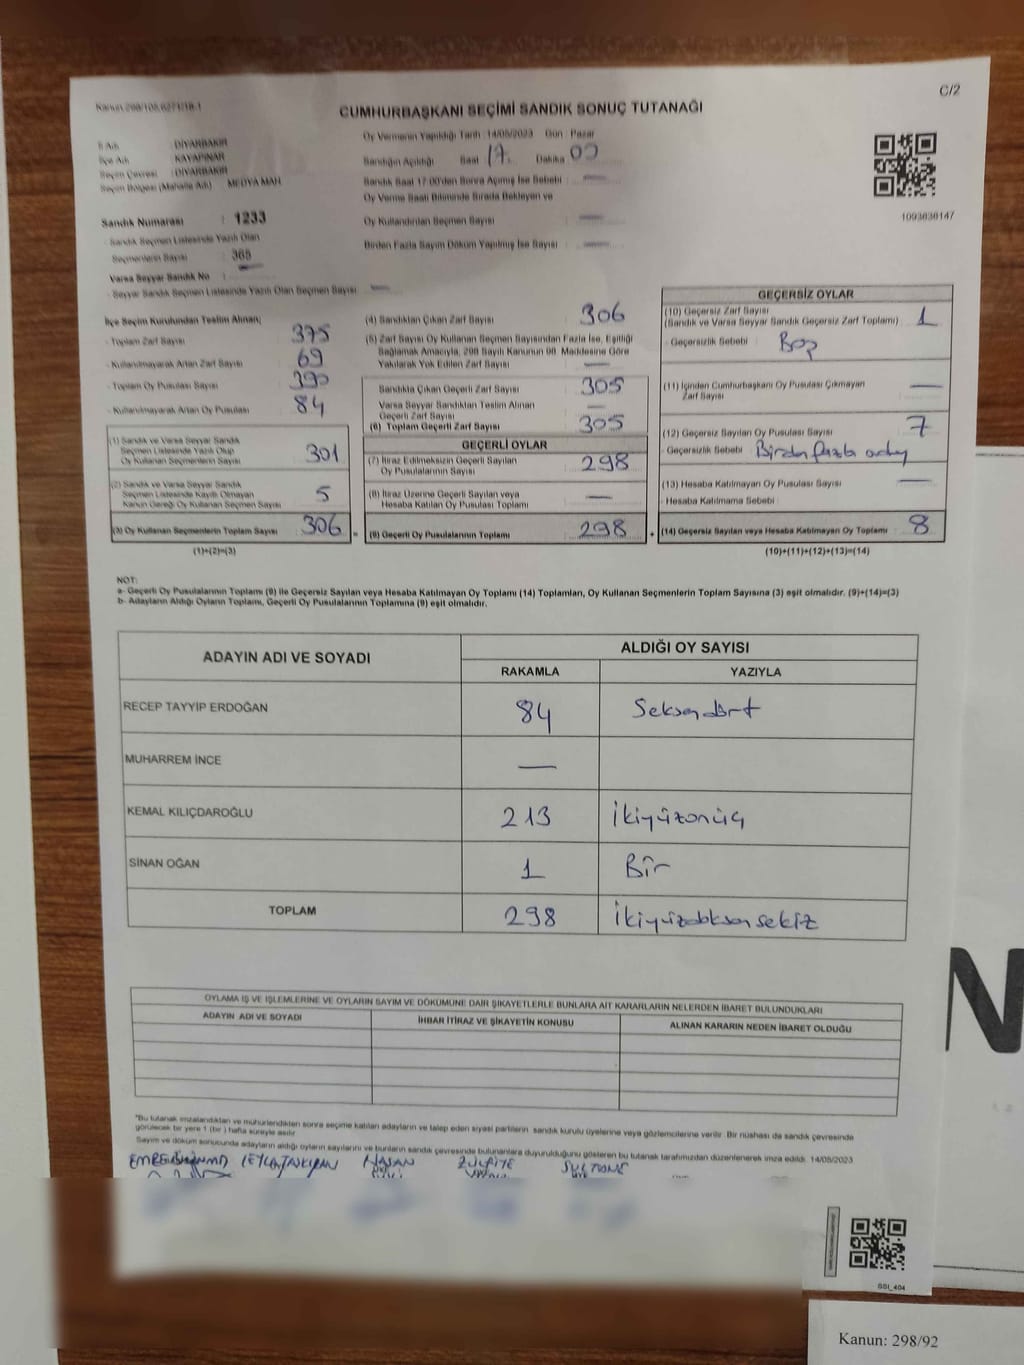 C/2
Kanun 298/105,6271/18-1
CUMHURBAŞKANI SEÇİMİ SANDIK SONUÇ TUTANAĞI
İl Adı : DİYARBAKIR
İlçe Adı : KAYAPINAR
Seçim Çevresi : DİYARBAKIR
Seçim Bölgesi (Mahalle Adı) : MEDYA MAH
Sandık Numarası : 1233
- Sandık Seçmen Listesinde Yazılı Olan
Seçmenlerin Sayısı : 365
Varsa Seyyar Sandık No :
- Seyyar Sandık Seçmen Listesinde Yazılı Olan Seçmen Sayısı : —
Oy Vermenin Yapıldığı Tarih : 14/05/2023 Gün : Pazar
Sandığın Açıldığı Saat 17. Dakika 00
Sandık Saat 17:00'den Sonra Açılmış İse Sebebi : —
Oy Verme Saati Bitiminde Sırada Bekleyen ve
Oy Kullandırılan Seçmen Sayısı : —
Birden Fazla Sayım Döküm Yapılmış İse Sayısı : —
1093636147
İlçe Seçim Kurulundan Teslim Alınan;
- Toplam Zarf Sayısı : 375
- Kullanılmayarak Artan Zarf Sayısı : 69
- Toplam Oy Pusulası Sayısı : 390
- Kullanılmayarak Artan Oy Pusulası : 84
(1) Sandık ve Varsa Seyyar Sandık
Seçmen Listesinde Yazılı Olup
Oy Kullanan Seçmenlerin Sayısı : 301
(2) Sandık ve Varsa Seyyar Sandık
Seçmen Listesinde Kayıtlı Olmayan
Kanun Gereği Oy Kullanan Seçmen Sayısı : 5
(3) Oy Kullanan Seçmenlerin Toplam Sayısı : 306
(1)+(2)=(3)
(4) Sandıktan Çıkan Zarf Sayısı : 306
(5) Zarf Sayısı Oy Kullanan Seçmen Sayısından Fazla İse, Eşitliği
Sağlamak Amacıyla, 298 Sayılı Kanunun 98. Maddesine Göre
Yakılarak Yok Edilen Zarf Sayısı : —
Sandıkta Çıkan Geçerli Zarf Sayısı : 305
Varsa Seyyar Sandıktan Teslim Alınan
Geçerli Zarf Sayısı : —
(6) Toplam Geçerli Zarf Sayısı : 305
GEÇERLİ OYLAR
(7) İtiraz Edilmeksizin Geçerli Sayılan
Oy Pusulalarının Sayısı : 298
(8) İtiraz Üzerine Geçerli Sayılan veya
Hesaba Katılan Oy Pusulası Toplamı : —
= (9) Geçerli Oy Pusulalarının Toplamı : 298 +
GEÇERSİZ OYLAR
(10) Geçersiz Zarf Sayısı
(Sandık ve Varsa Seyyar Sandık Geçersiz Zarf Toplamı) : 1
- Geçersizlik Sebebi : Boş
(11) İçinden Cumhurbaşkanı Oy Pusulası Çıkmayan
Zarf Sayısı : —
(12) Geçersiz Sayılan Oy Pusulası Sayısı : 7
- Geçersizlik Sebebi : Birden fazla aday
(13) Hesaba Katılmayan Oy Pusulası Sayısı : —
- Hesaba Katılmama Sebebi :
(14) Geçersiz Sayılan veya Hesaba Katılmayan Oy Toplamı : 8
(10)+(11)+(12)+(13)=(14)
NOT:
a- Geçerli Oy Pusulalarının Toplamı (9) ile Geçersiz Sayılan veya Hesaba Katılmayan Oy Toplamı (14) Toplamları, Oy Kullanan Seçmenlerin Toplam Sayısına (3) eşit olmalıdır. (9)+(14)=(3)
b- Adayların Aldığı Oyların Toplamı, Geçerli Oy Pusulalarının Toplamına (9) eşit olmalıdır.
ADAYIN ADI VE SOYADI
ALDIĞI OY SAYISI
RAKAMLA YAZIYLA
RECEP TAYYİP ERDOĞAN 84 Seksendört
MUHARREM İNCE —
KEMAL KILIÇDAROĞLU 213 İkiyüzonüç
SİNAN OĞAN 1 Bir
TOPLAM 298 İkiyüzdoksan sekiz
OYLAMA İŞ VE İŞLEMLERİNE VE OYLARIN SAYIM VE DÖKÜMÜNE DAİR ŞİKAYETLERLE BUNLARA AİT KARARLARIN NELERDEN İBARET BULUNDUKLARI
ADAYIN ADI VE SOYADI İHBAR İTİRAZ VE ŞİKAYETİN KONUSU ALINAN KARARIN NEDEN İBARET OLDUĞU
*Bu tutanak imzalandıktan ve mühürlendikten sonra seçime katılan adayların ve talep eden siyasi partilerin sandık kurulu üyelerine veya gözlemcilerine verilir. Bir nüshası da sandık çevresinde
görülecek bir yere 1 (bir ) hafta süreyle asılır.
Sayım ve döküm sonucunda adayların aldığı oyların sayılarını ve bunların sandık çevresinde bulunanlara duyurulduğunu gösteren bu tutanak tarafımızdan düzenlenerek imza edildi. 14/05/2023
HASAN ZÜLFİYE
SSI_404
N
Kanun: 298/92